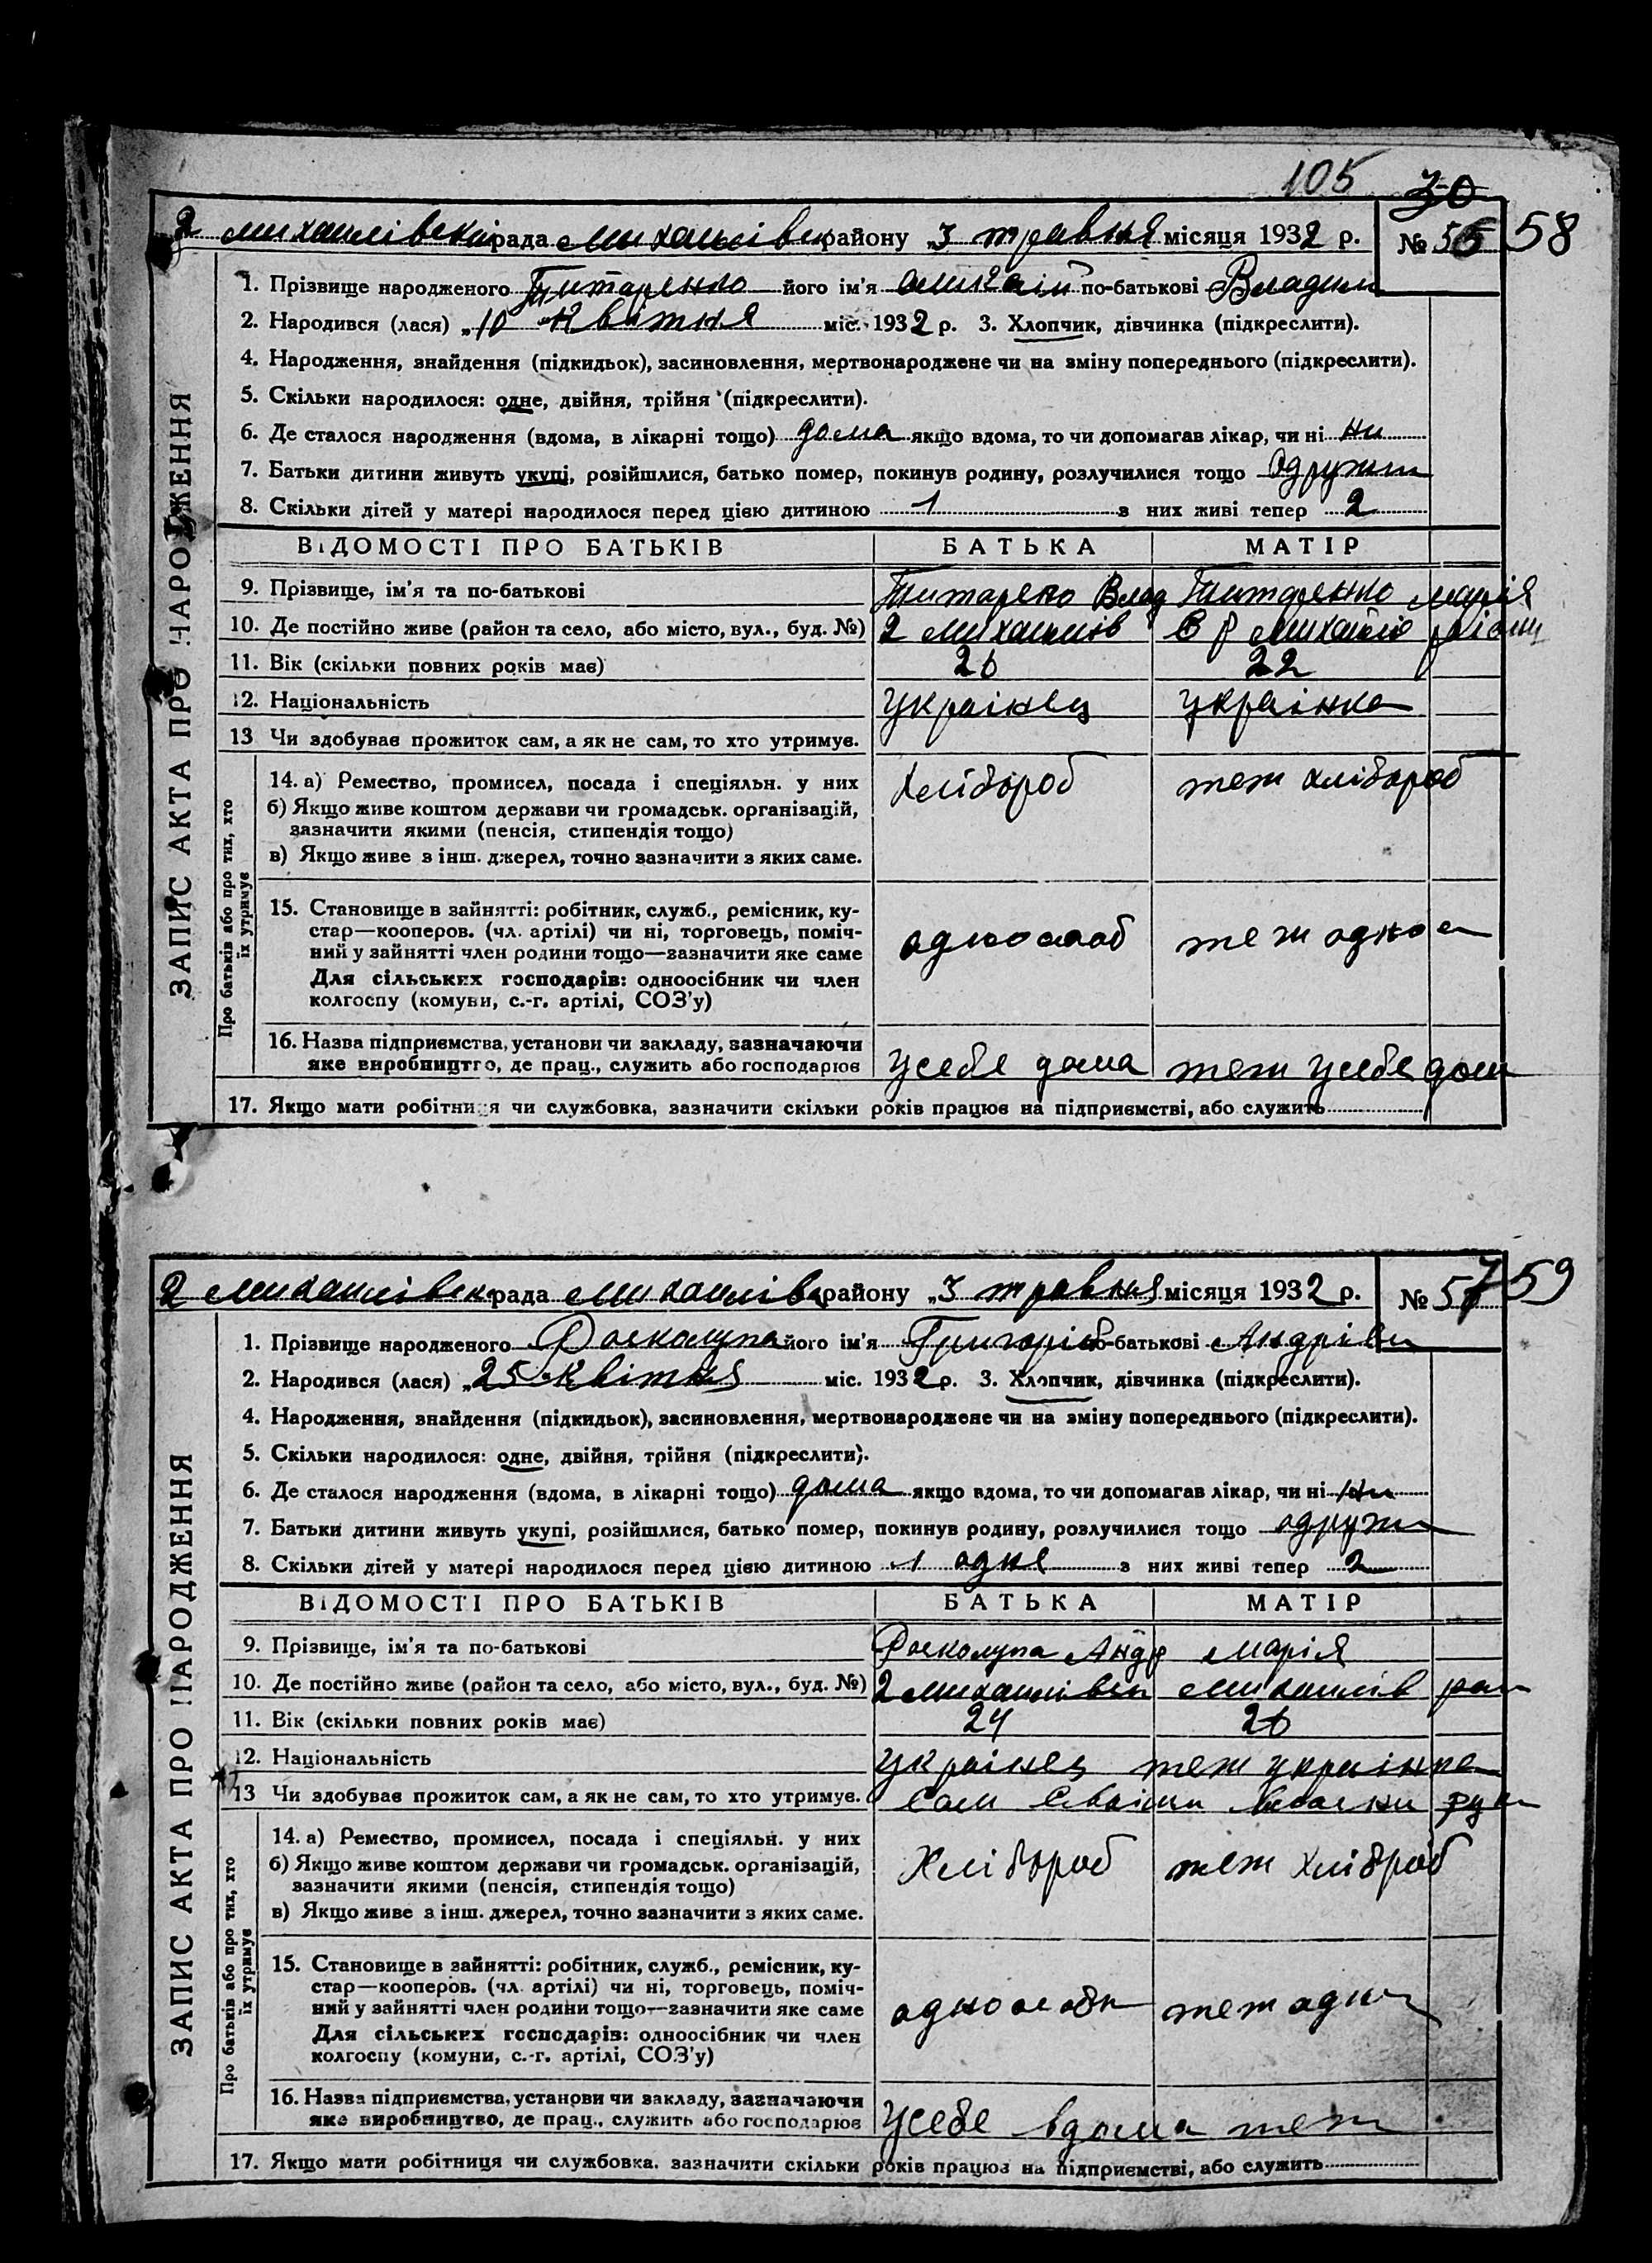 105 30
2 михайлівська рада михайлівськ району „3 травня місяця 1932 р. № 56 58
ЗАПИС АКТА ПРО НАРОДЖЕННЯ
1. Прізвище народженого Титаренко його ім'я по-батькові Владим
2. Народився (лася) „10 квітня міс. 1932 р. 3. Хлопчик, дівчинка (підкреслити).
4. Народження, знайдення (підкидьок), засиновлення, мертвонароджене чи на зміну попереднього (підкреслити).
5. Скільки народилося: одне, двійня, трійня (підкреслити).
6. Де сталося народження (вдома, в лікарні тощо) дома якщо вдома, то чи допомагав лікар, чи ні ни
7. Батьки дитини живуть укупі, розійшлися, батько помер, покинув родину, розлучилися тощо одружен
8. Скільки дітей у матері народилося перед цією дитиною 1 з них живі тепер 2
ВІДОМОСТІ ПРО БАТЬКІВ БАТЬКА МАТІР
9. Прізвище, ім'я та по-батькові Титарено Влад Титаренко марія
10. Де постійно живе (район та село, або місто, вул., буд. №) 2 михайлів
11. Вік (скільки повних років має) 26 22
12. Національність українец українка
13 Чи здобував прожиток сам, а як не сам, то хто утримує.
Про батьків або про тих, хто їх утримує
14. а) Ремество, промисел, посада і спеціяльн. у них хлібороб теж хлібороб
б) Якщо живе коштом держави чи громадськ. організацій,
зазначити якими (пенсія, стипендія тощо)
в) Якщо живе з інш. джерел, точно зазначити з яких саме.
15. Становище в зайнятті: робітник, служб., ремісник, ку-
стар—кооперов. (чл. артілі) чи ні, торговець, поміч-
ний у зайнятті член родини тощо—зазначити яке саме одноособ теж одноо
Для сільських господарів: одноосібник чи член
колгоспу (комуни, с.-г. артілі, СОЗ'у)
16. Назва підприємства, установи чи закладу, зазначаючи
яке виробництво, де прац., служить або господарює усебе дома теж усебе дом
17. Якщо мати робітниця чи службовка, зазначити скільки років працює на підприємстві, або служить
2 михайлівськ рада михайлівськ району „3 травня місяця 1932 р. № 57 59
ЗАПИС АКТА ПРО НАРОДЖЕННЯ
1. Прізвище народженого Росколупа його ім'я Григорій по-батькові Андрієв
2. Народився (лася) „25 квітня міс. 1932 р. 3. Хлопчик, дівчинка (підкреслити).
4. Народження, знайдення (підкидьок), засиновлення, мертвонароджене чи на зміну попереднього (підкреслити).
5. Скільки народилося: одне, двійня, трійня (підкреслити).
6. Де сталося народження (вдома, в лікарні тощо) дома якщо вдома, то чи допомагав лікар, чи ні ни
7. Батьки дитини живуть укупі, розійшлися, батько помер, покинув родину, розлучилися тощо одруж
8. Скільки дітей у матері народилося перед цією дитиною 1 одне з них живі тепер 2
ВІДОМОСТІ ПРО БАТЬКІВ БАТЬКА МАТІР
9. Прізвище, ім'я та по-батькові Росколупа Андр марія
10. Де постійно живе (район та село, або місто, вул., буд. №) 2 михайлівськ михайлів рай
11. Вік (скільки повних років має) 24 26
12. Національність українец теж українка
13 Чи здобував прожиток сам, а як не сам, то хто утримує. Сам своїми
Про батьків або про тих, хто їх утримує
14. а) Ремество, промисел, посада і спеціяльн. у них Хлібороб теж хліброб
б) Якщо живе коштом держави чи громадськ. організацій,
зазначити якими (пенсія, стипендія тощо)
в) Якщо живе з інш. джерел, точно зазначити з яких саме.
15. Становище в зайнятті: робітник, служб., ремісник, ку-
стар—кооперов. (чл. артілі) чи ні, торговець, поміч-
ний у зайнятті член родини тощо—зазначити яке саме одноособн теж одно
Для сільських господарів: одноосібник чи член
колгоспу (комуни, с.-г. артілі, СОЗ'у)
16. Назва підприємства, установи чи закладу, зазначаючи
яке виробництво, де прац., служить або господарює усебе вдома теж
17. Якщо мати робітниця чи службовка. зазначити скільки років працює на підприємстві, або служить